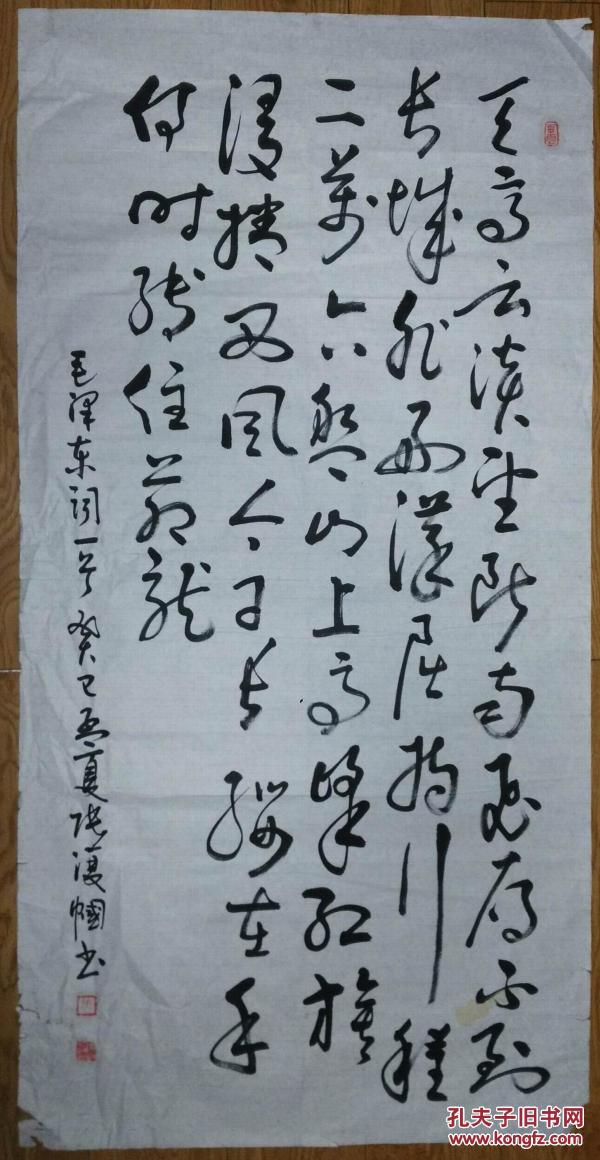 天高云淡望断南飞雁不到
长城非好汉屈指行程
二万六盘山上高峰红旗
漫捲西风今日长缨在手
何时缚住苍龙
毛泽东词一首 癸巳孟夏 书
孔夫子旧书网
www.kongfz.com